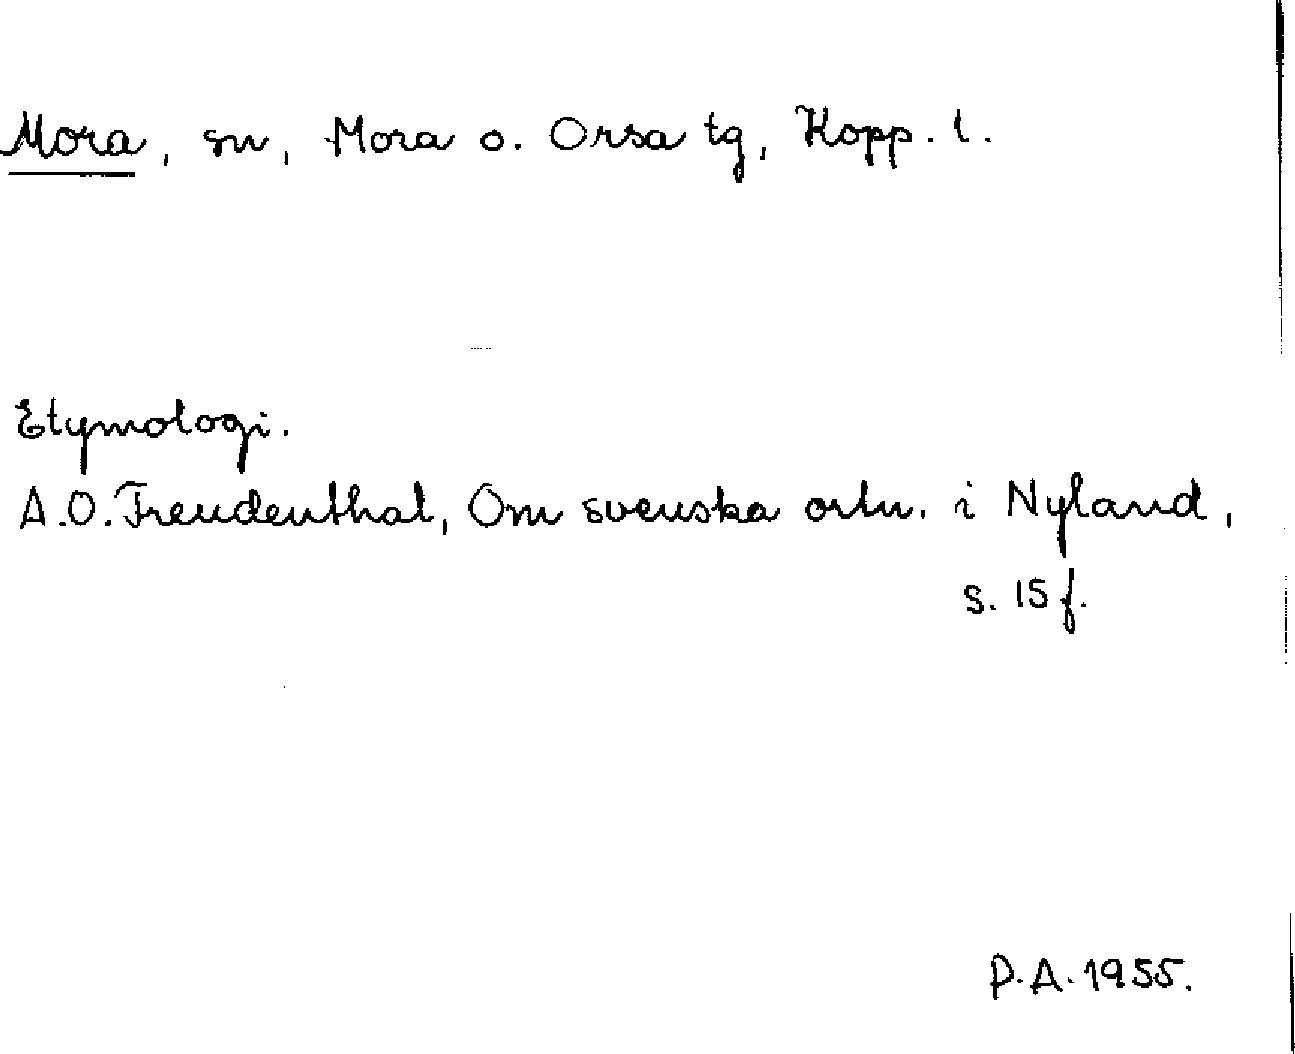 Mora, sn, Mora o. Orsa tg, Kopp. l.
Etymologi.
A.O. Freudenthal, Om svenska ortn. i Nyland,
s. 15 f.
P.A. 1955.